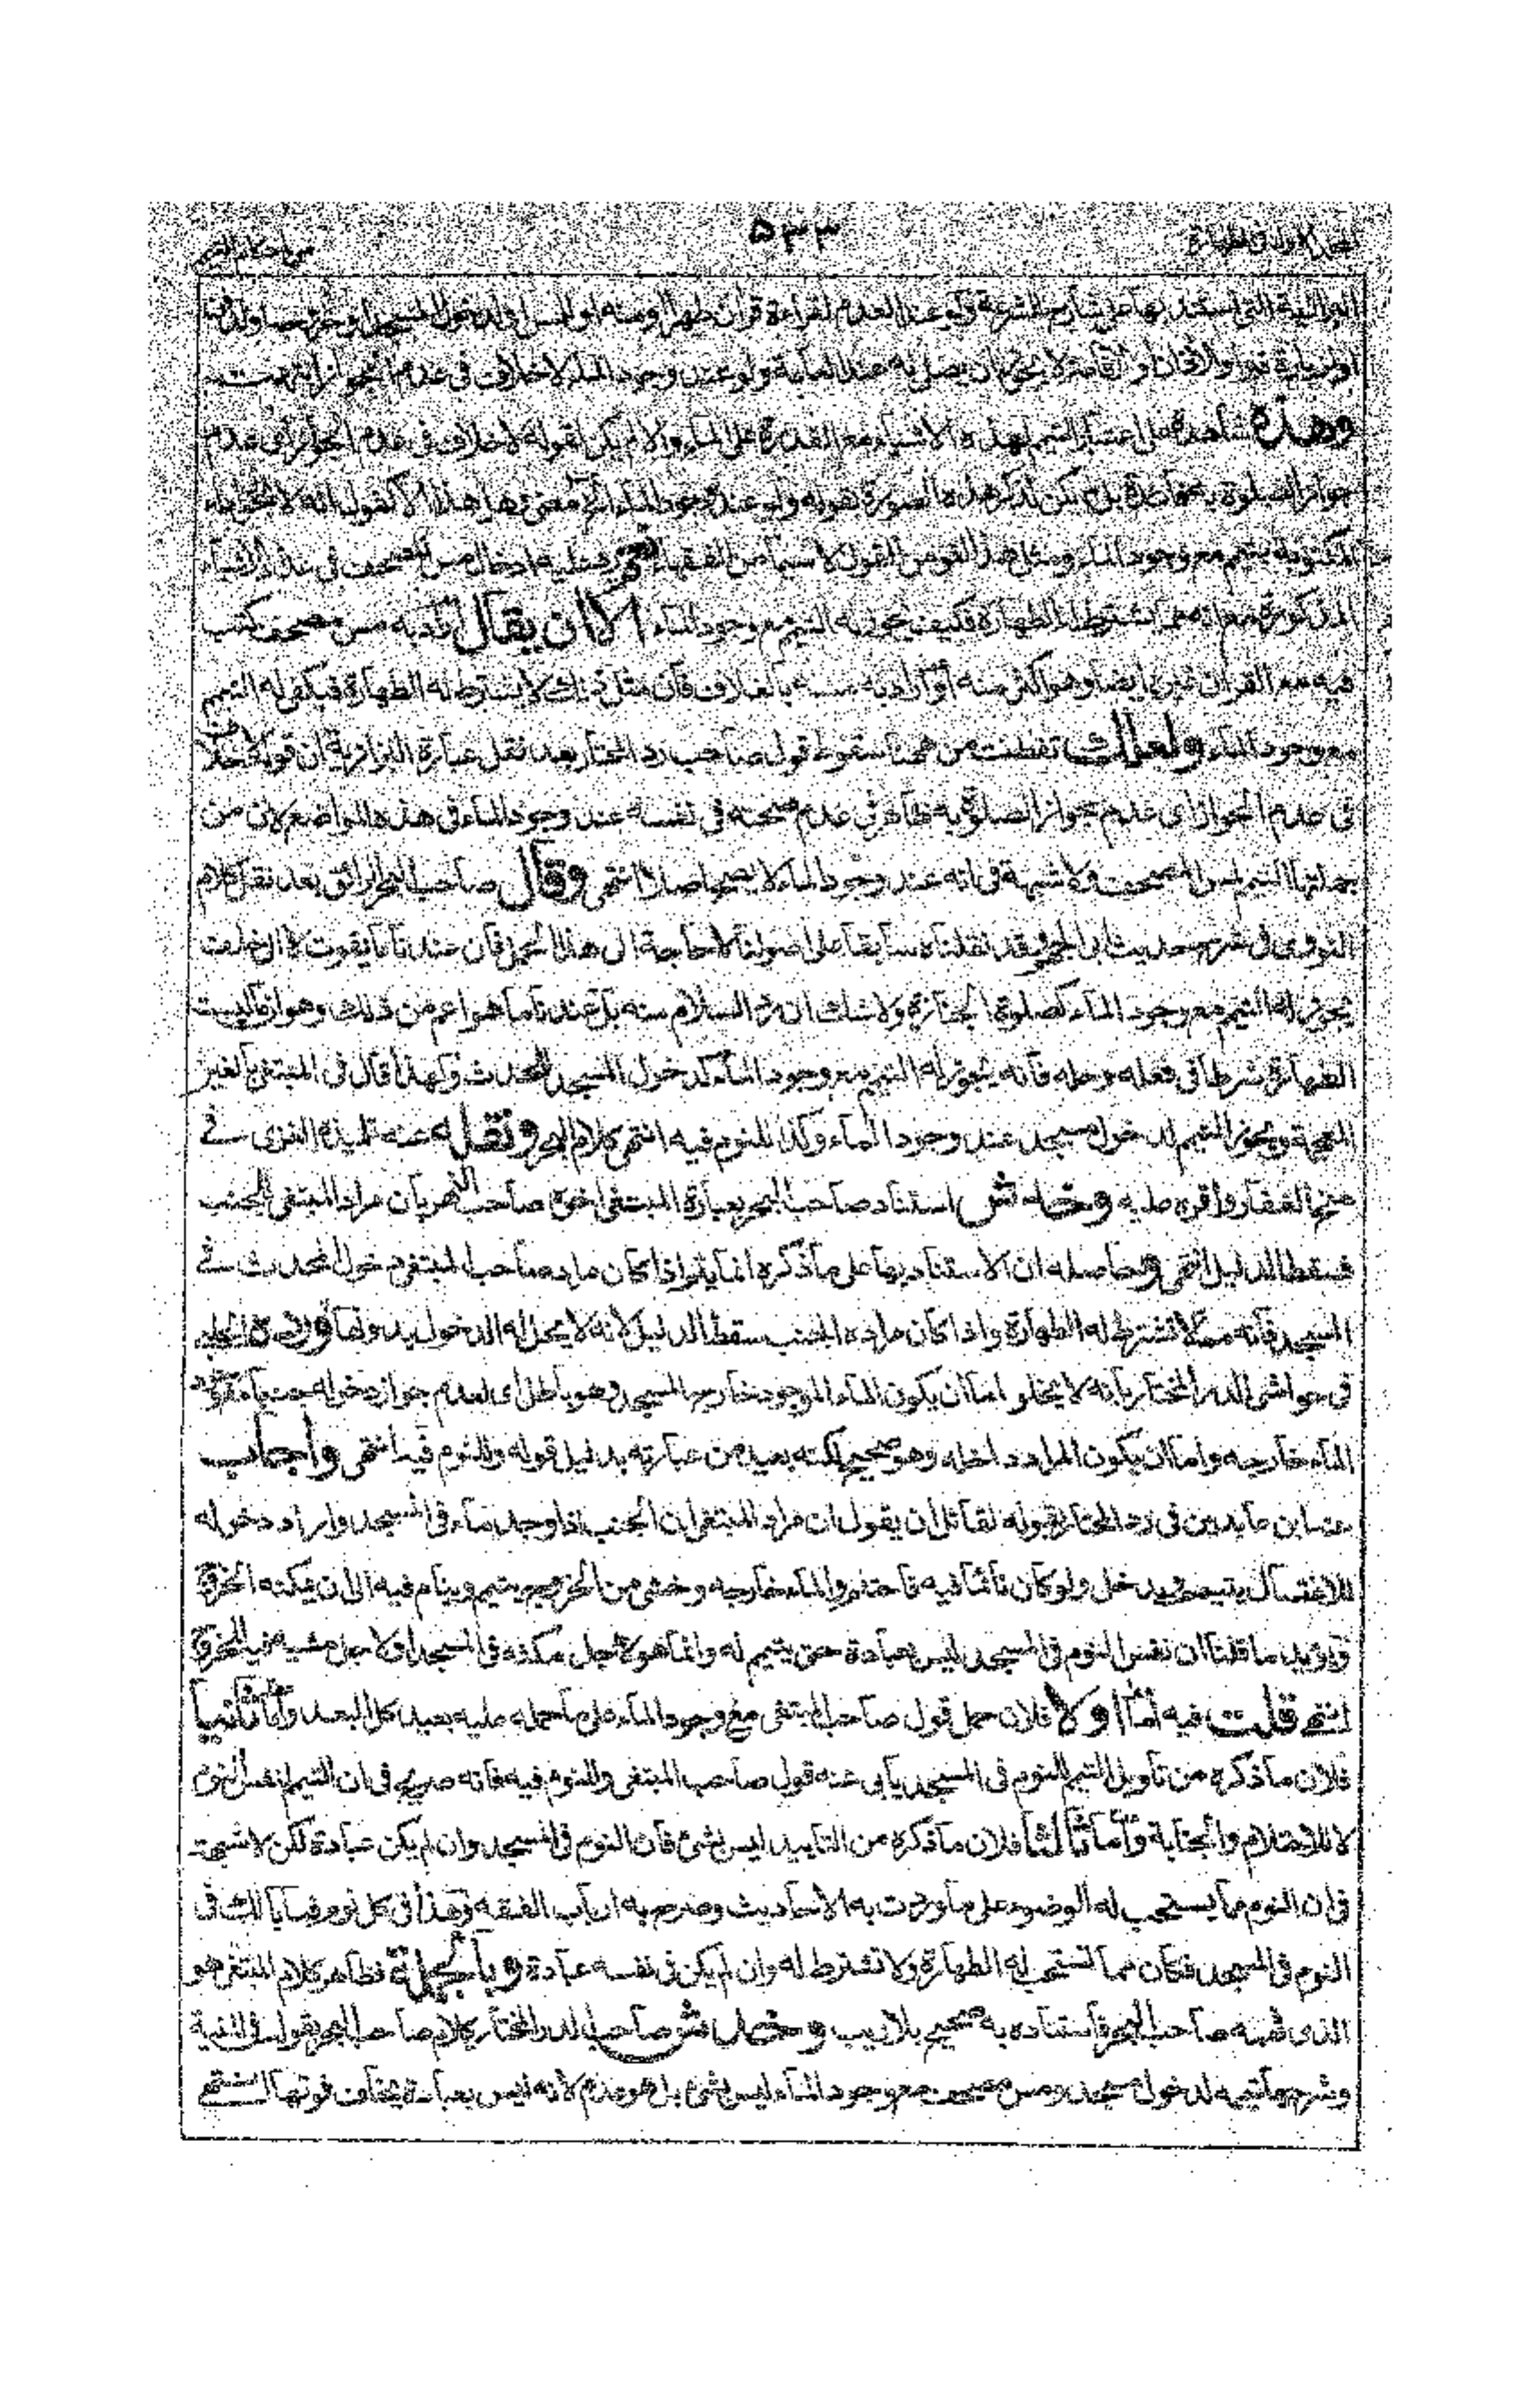 ۵۳۳
لقراءة قرآن ظهرا ومنه او لمس او لدخول المسجد او خروجه او لدفن
او زيارة قبر او الاذان او الاقامة لا يجوز ان يصلى به عند العامة ولو عند وجود الماء لاخلاف فى عدم الجواز انتهت
وهذه شاهدة على اعتبار التيمم لهذه الاشياء مع القدرة على الماء والا لم يكن لقوله لاخلاف فى عدم الجواز اى عدم
جواز الصلوة به
مع وجود الماء
المذكورة مع انه مما يشترط له الطهارة فكيف يجوز له التيمم مع وجود الماء الا ان يقال اراد به مس مصحف كتب
فيه مع القران غيره ايضا وهو اكثر منه او اراد به مسه بالغلاف فان مثل ذلك لا يشترط له الطهارة فيكفى له التيمم
مع وجود الماء ولعلك تفطنت من ههنا سقوط قول صاحب رد المحتار بعد نقل عبارة البزازية ان قوله لاخلاف
فى عدم الجواز اى عدم جواز الصلوة به ظاهر فى عدم صحته فى نفسه عند وجود الماء فى هذه المواضع لان من
جملتها التيمم لمس المصحف ولا شبهة فى انه عند وجود الماء لا يصح اصلا انتهى وقال صاحب البحر الرائق بعد نقل كلام
النووى فى شرح حديث ابى الجهيم وقد نقلناه سابقا على اصولنا لا حاجة الى هذا الحمل فان عندنا ما يفوت لا الى خلف
يجوز له التيمم مع وجود الماء كصلوة الجنازة ولا شك ان رد السلام منه بل عندنا ما هو اعم من ذلك وهو ان ما ليست
الطهارة شرطا فى فعله وحله فانه يجوز له التيمم مع وجود الماء كدخول المسجد للمحدث ولهذا قال فى المبتغى بالغين
المعجمة ويجوز التيمم لدخول مسجد عند وجود الماء وكذا للنوم فيه انتهى كلام البحر ونقله عنه تلميذه الغزى فى
منح الغفار واقره عليه وخدش استناد صاحب البحر بعبارة المبتغى اخوه صاحب النهر بان مراد المبتغى الجنب
فسقط الدليل انتهى وحاصله ان الاستناد بها على ما ذكره انما يتم اذا كان مراد صاحب المبتغى دخول المحدث فى
المسجد فانه مما لا تشترط له الطهارة واذا كان مراده الجنب سقط الدليل لانه لا يحل له الدخول بدونها واورد عليه الحلبى
فى حواشى الدر المختار بانه لا يخلو اما ان يكون الماء الموجود خارج المسجد وهو باطل اى لعدم جواز دخوله جنبا مع وجود
الماء خارجه واما ان يكون المراد داخله وهو صحيح لكنه بعيد من عبارته بدليل قوله وللنوم فيه انتهى واجاب
عنه ابن عابدين فى رد المحتار بقوله لقائل ان يقول ان مراد المبتغى ان الجنب اذا وجد ماء فى المسجد واراد دخوله
للاغتسال يتيمم ويدخل ولو كان نائما فيه فاحتلم والماء خارجه وخشى من الخروج يتيمم وينام فيه الى ان يمكنه الخروج
ويؤيد ما قلنا ان نفس النوم فى المسجد ليس عبادة حتى يتيمم له وانما هو لاجل مكثه فى المسجد او لاجل مشيه فيه للخروج
انتهى قلت فيه اما اولا فلان حمل قول صاحب المبتغى مع وجود الماء على ما حمله عليه بعيد كل البعد واما ثانيا
فلان ما ذكره من تأويل التيمم للنوم فى المسجد يأبى عنه قول صاحب المبتغى وللنوم فيه فانه صريح فى ان التيمم لنفس النوم
لا للاحتلام والجنابة واما ثالثا فلان ما ذكره من التأييد ليس بشئ فان النوم فى المسجد وان لم يكن عبادة لكن لا شبهة
فى ان النوم مما يستحب له الوضوء على ما وردت به الاحاديث وصرح به ارباب الفقه وهذا فى كل نوم فما بالك فى
النوم فى المسجد فكان مما تستحب له الطهارة ولا تشترط له وان لم يكن فى نفسه عبادة وبالجملة فظاهر كلام المبتغى هو
الذى فهمه صاحب البحر فاستناده به صحيح بلا ريب وخدش صاحب الدر المختار كلام صاحب البحر بقوله فى المنية
وشرحها تيممه لدخول مسجد ومس مصحف مع وجود الماء ليس بشئ بل هو عدم لانه ليس بعبادة يخاف فوتها انتهى